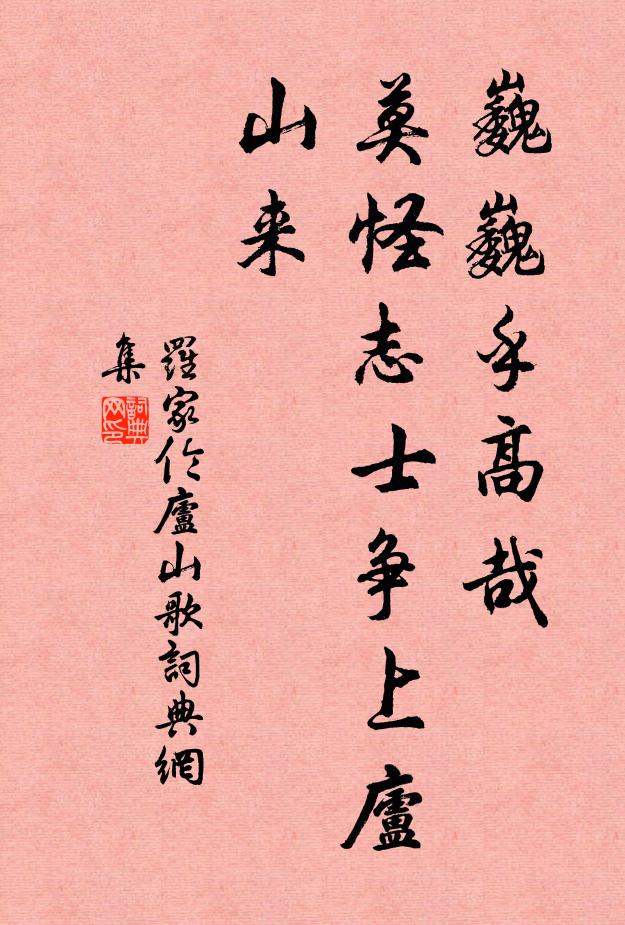 巍巍乎高哉
莫怪志士争上廬
山来
羅家伦廬山歌詞典網
集
詞典
网印